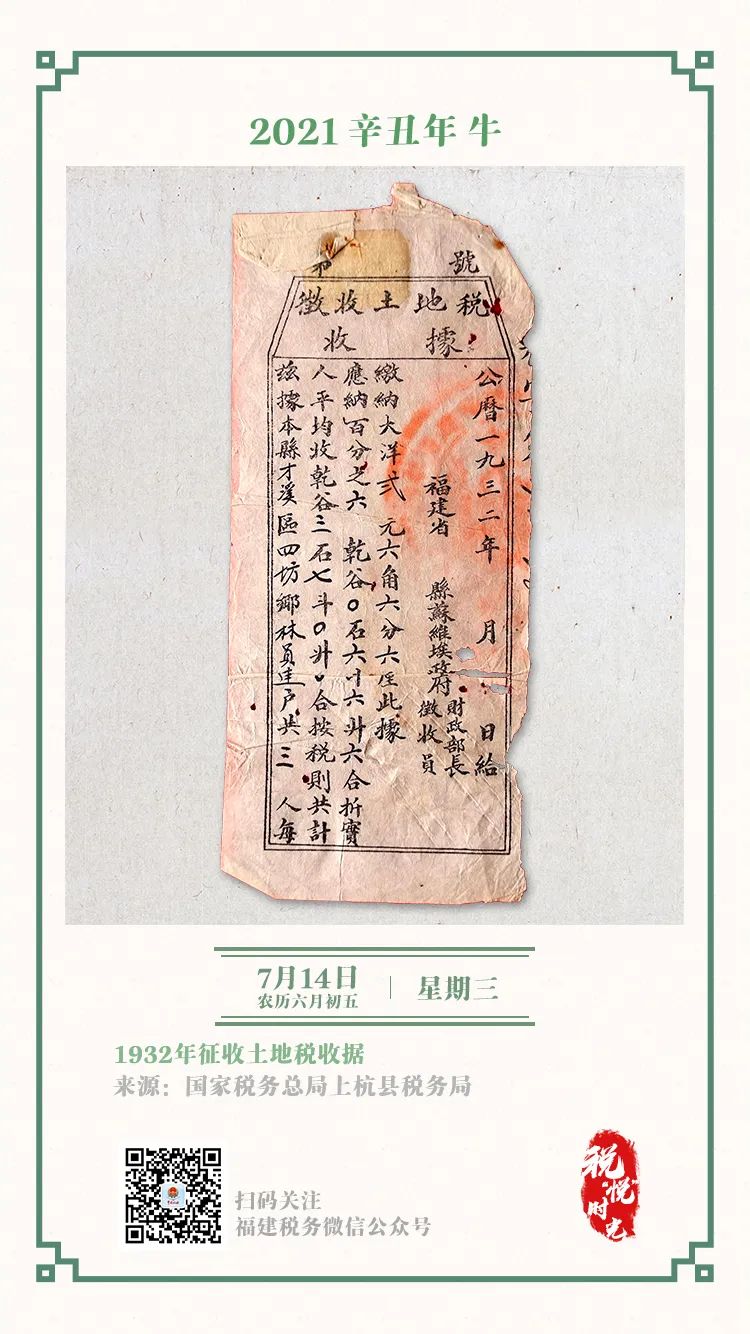 2021 辛丑年 牛
第 號
徵收土地税
收據
茲據本縣才溪區四坊鄉林員連戶共三人每
人平均收乾谷三石七斗0升0合按税則共計
應納百分之六 乾谷0石六斗六升六合折實
繳納大洋弍元六角六分六厘此據
福建省 縣蘇維埃政府 財政部長
徵收員
公曆一九三二年 月 日給
7月14日
农历六月初五
星期三
1932年征收土地税收据
来源：国家税务总局上杭县税务局
扫码关注
福建税务微信公众号
税
“悦”
时光